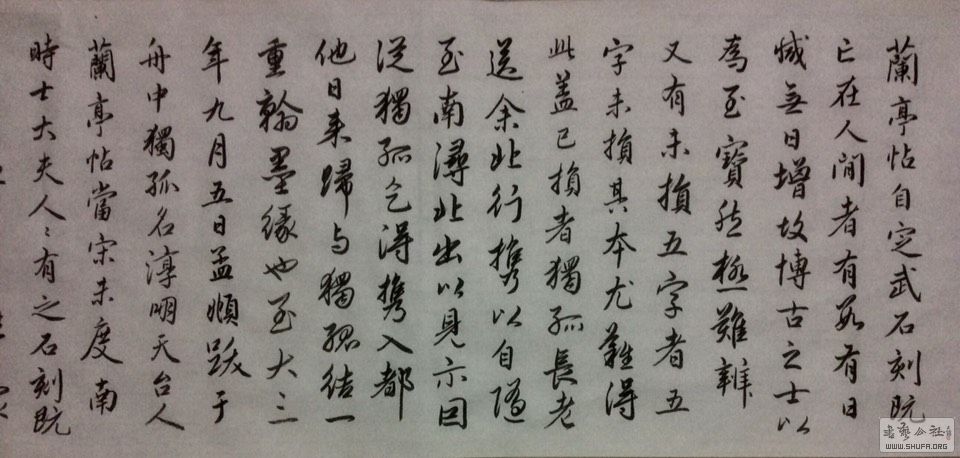 蘭亭帖自定武石刻既
亡在人間者有數有日
減無日增故博古之士以
為至寶然極難辨
又有未損五字者五
字未損其本尤難得
此蓋已損者獨孤長老
送余北行攜以自隨
至南潯北出以見示因
從獨孤乞得攜入都
他日来歸与獨孤結一
重翰墨緣也至大三
年九月五日孟頫跋于
舟中獨孤名淳明天台人
蘭亭帖當宋未度南
時士大夫人〻有之石刻既
書藝公社
WWW.SHUFA.ORG